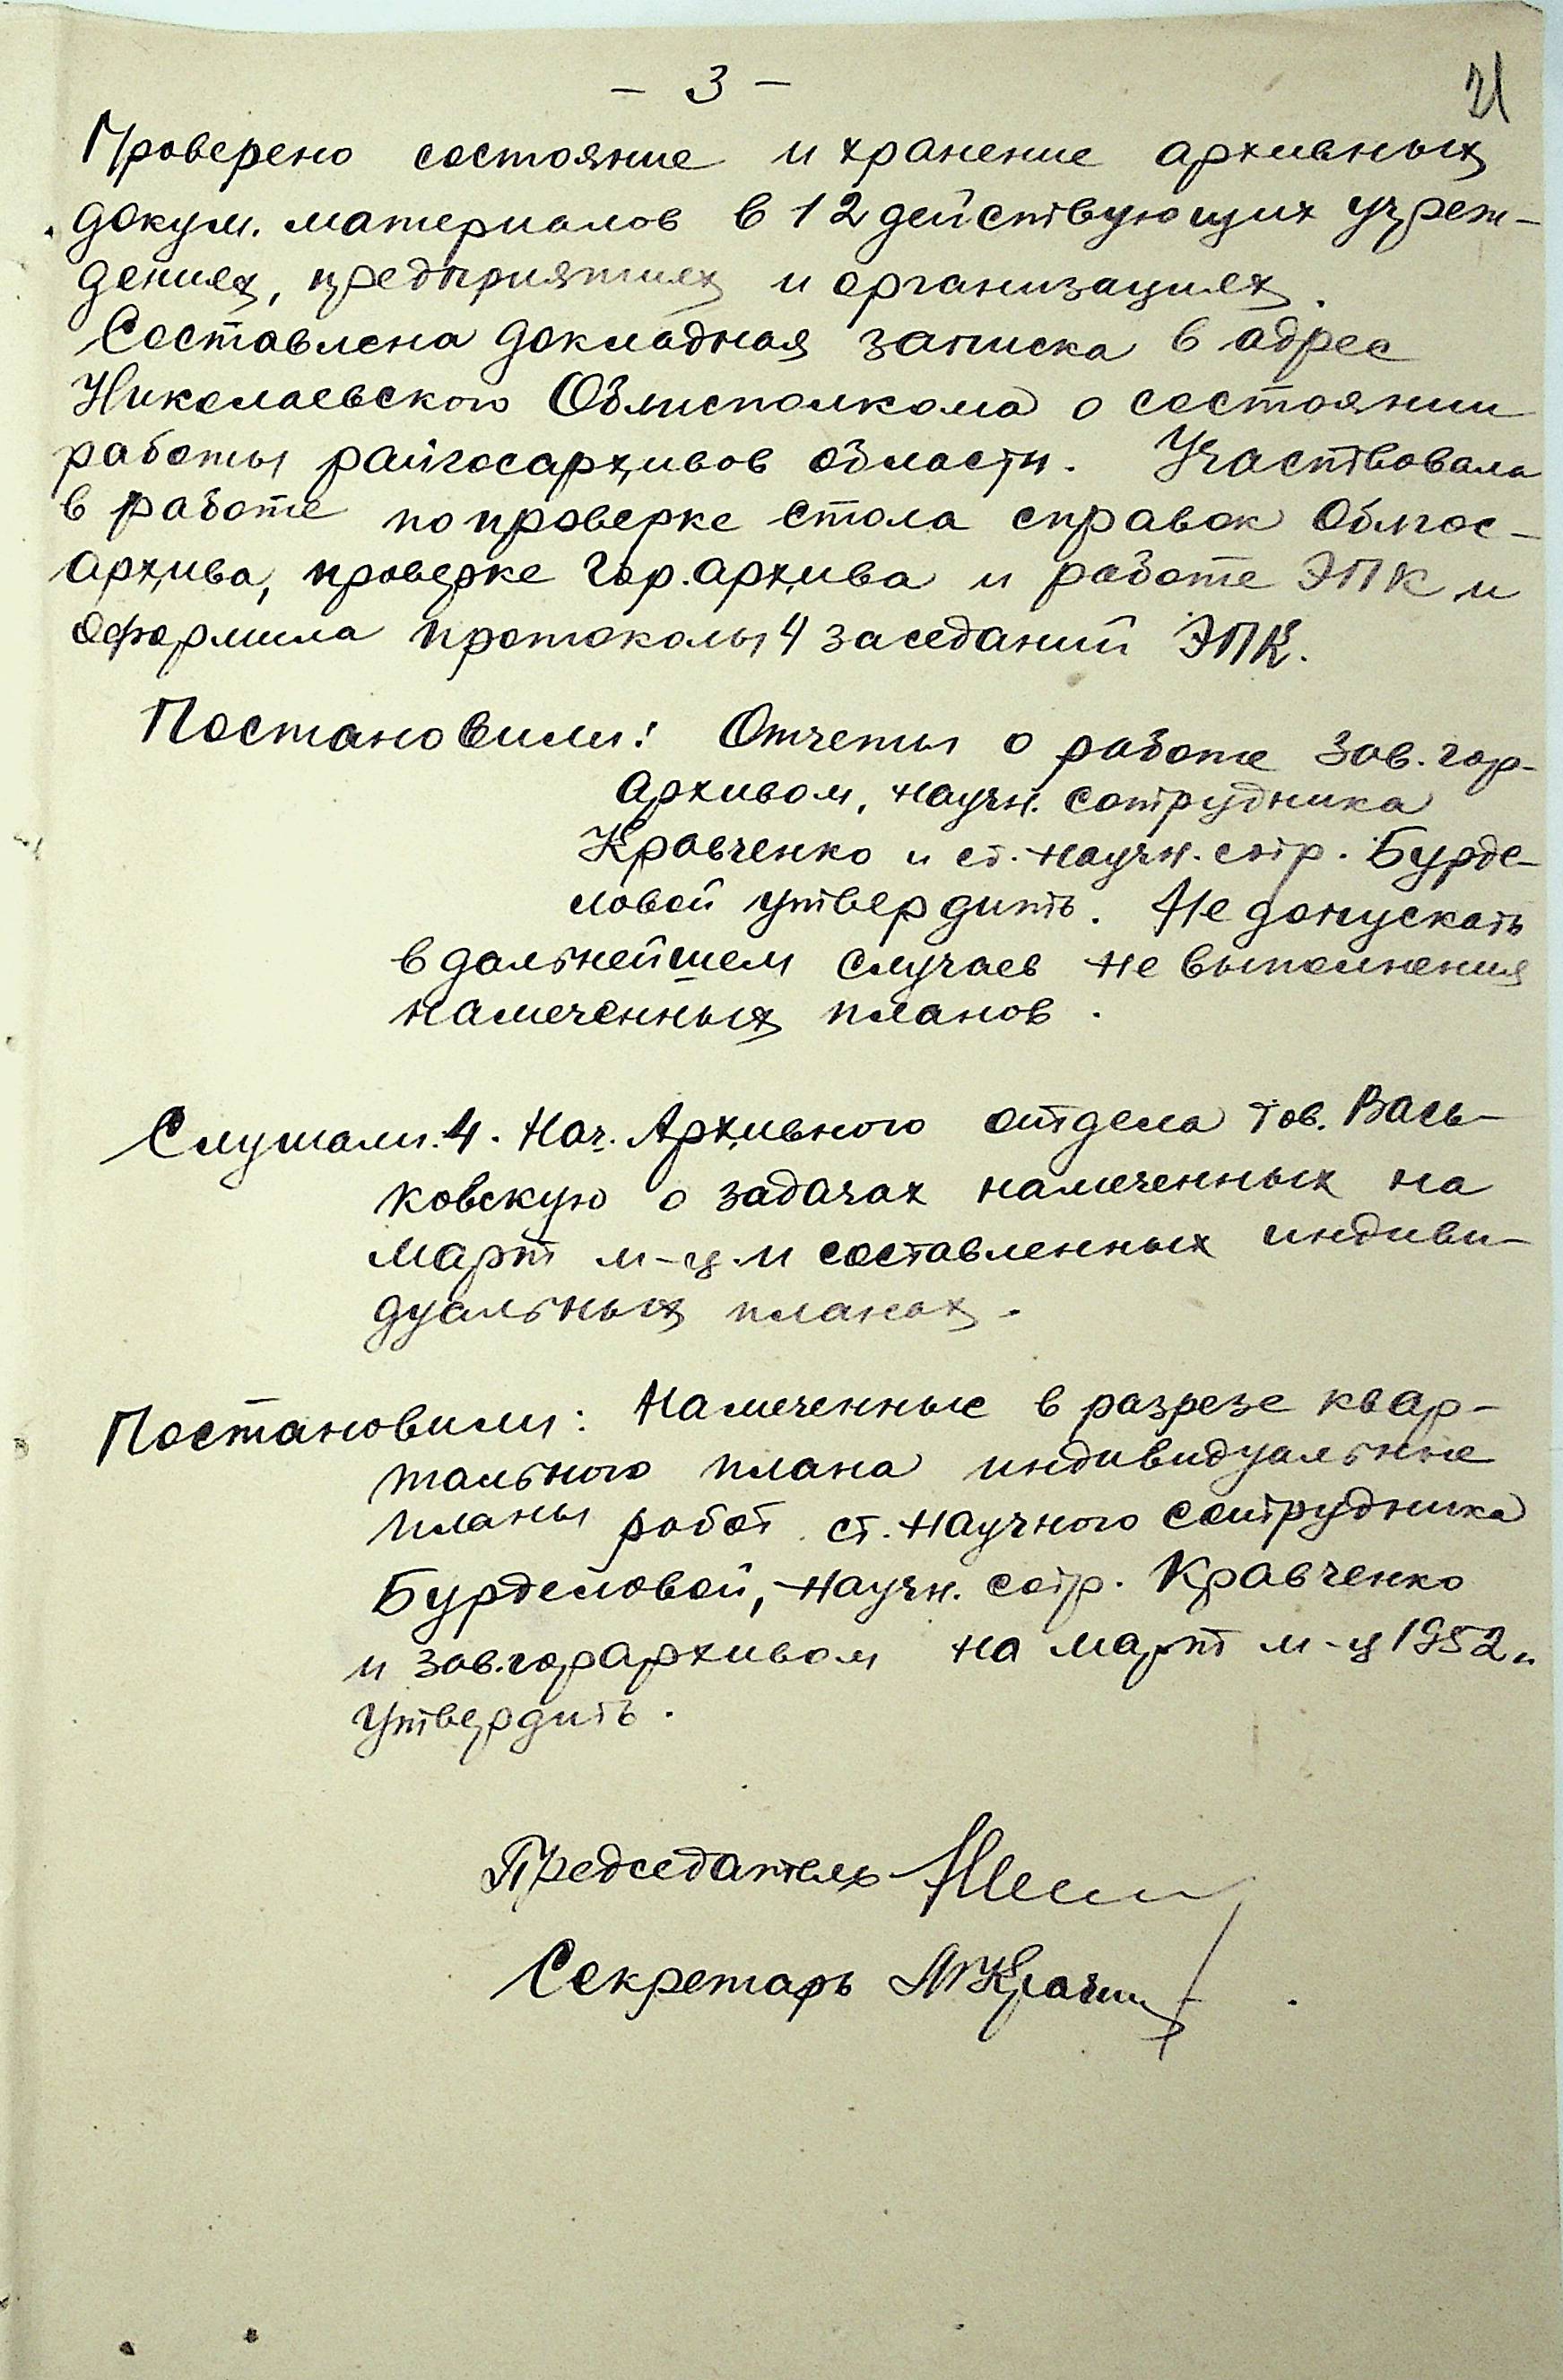 - 3 -
21
Проверено состояние и хранение архивных
докум. материалов в 12 действующих учреж-
дениях, предприятиях и организациях.
Составлена докладная записка в адрес
Николаевского Облисполкома о состоянии
работы райгосархивов области. Участвовала
в работе по проверке стола справок Облгос-
архива, проверке Гор.архива и работе ЭПК и
оформила протоколы 4 заседаний ЭПК.
Постановили: Отчеты о работе зав. гор-
архивом, научн. сотрудника
Кравченко и ст. научн. сотр. Бурде-
ловой утвердить. Не допускать
в дальнейшем случаев не выполнения
намеченных планов.
Слушали: 4. Нач. Архивного отдела тов. Вась-
ковскую о задачах намеченных на
март м-ц и составленных индиви-
дуальных планах.
Постановили: Намеченные в разрезе квар-
тального плана индивидуальные
планы работ ст. научного сотрудника
Бурделовой, научн. сотр. Кравченко
и зав.горархивом на март м-ц 1952 г.
утвердить.
Председатель
Секретарь